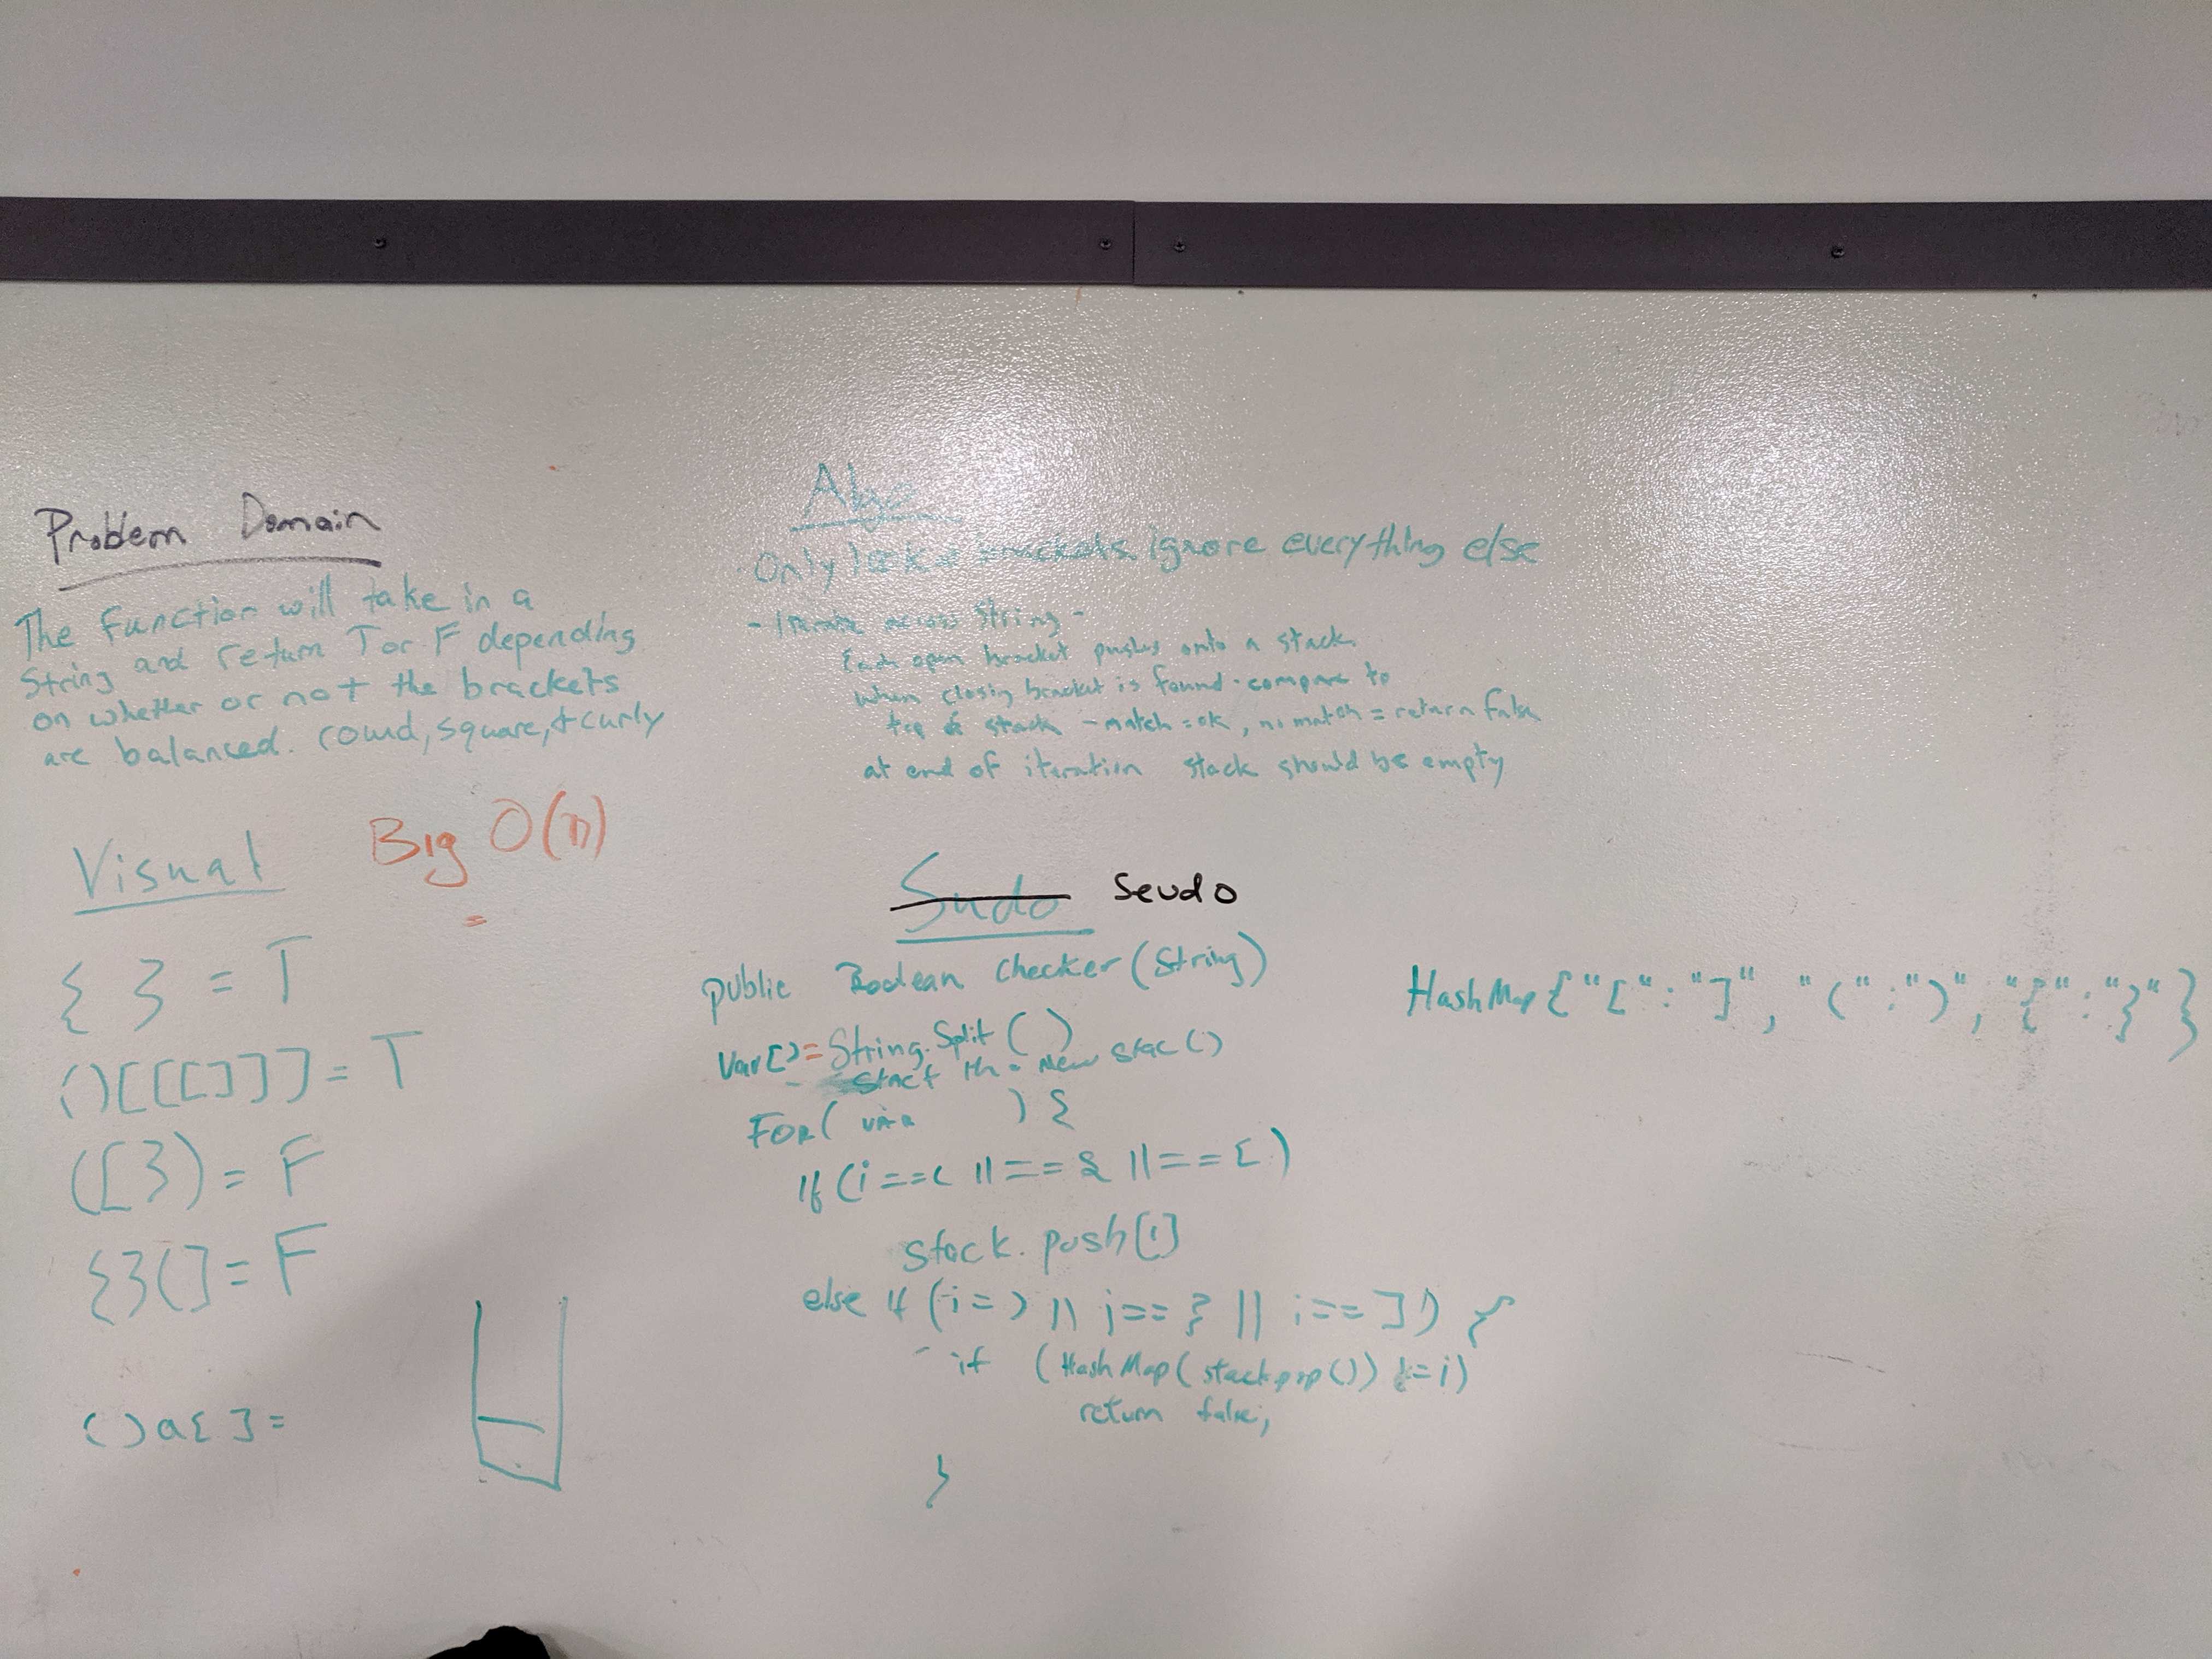 Problem Domain
The function will take in a
String and return T or F depending
on whether or not the brackets
are balanced. round, square, & curly
Visual
Big O(n)
{ } = T
()[[[]]] = T
([}) = F
{}(] = F
()a{ ] =
Algo
Only look @ brackets. ignore everything else
- Iterate across string -
Each open bracket pushes onto a stack.
when closing bracket is found - compare to
top of stack - match = ok, no match = return false
at end of iteration stack should be empty
Sudo Seudo
public Boolean checker (String)
Var[] = String.Split ( )
= new Stac ()
FOR( var ) {
If (i == ( || == { || == [ )
stack. push[i]
else if (i = ) || i == } || i == ]) {
if (HashMap( stack pop()) != i)
return false;
}
HashMap{"[" : "]", "(" : ")", "{" : "}" }